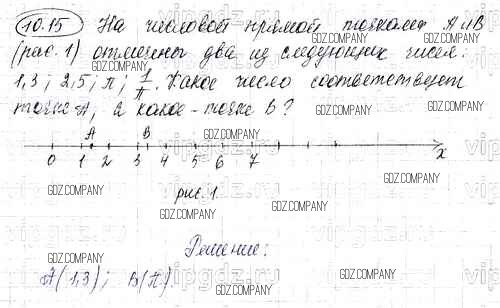 10.15 На числовой прямой точками А и В
(рис. 1) отмечены два из следующих чисел:
1,3; 2,5; π; 1/π. Какое число соответствует
точке А, а какое - точке В?
A B
0 1 2 3 4 5 6 7 x
рис. 1.
Решение:
A(1,3); B(π).
GDZ.COMPANY
vipgdz.ru